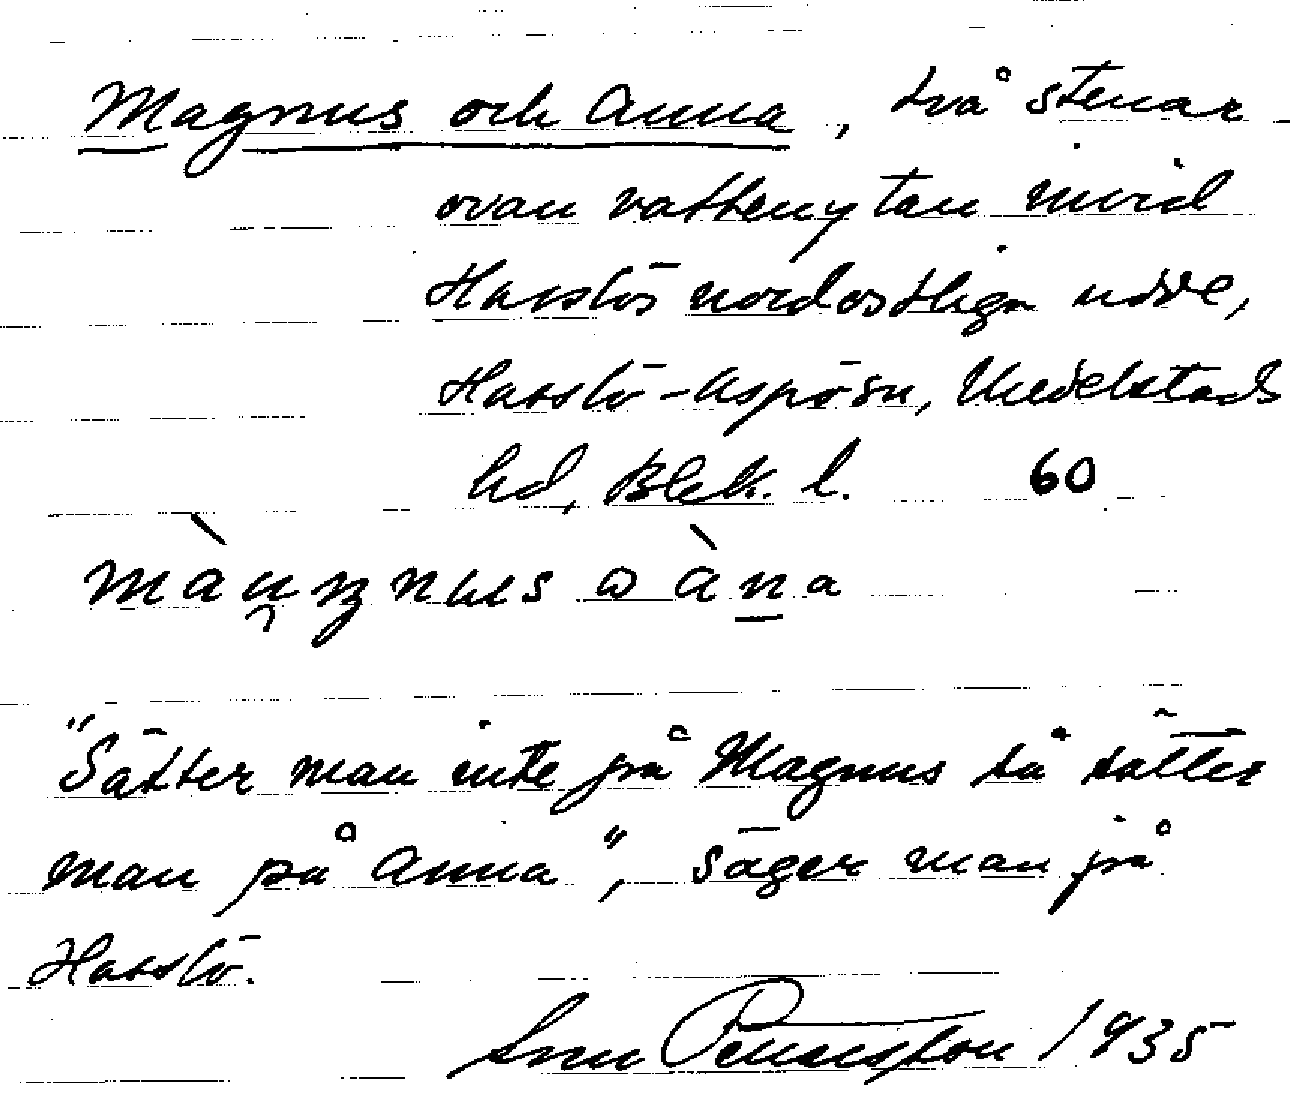 Magnus och Anna, två stenar
ovan vattenytan invid
Hasslös nordostliga udde,
Hasslö-Aspösn, Medelstads
hd, Blek. l. 60
"Sätter man inte på Magnus så sätter
man på Anna", säger man på
Hasslö.
1935